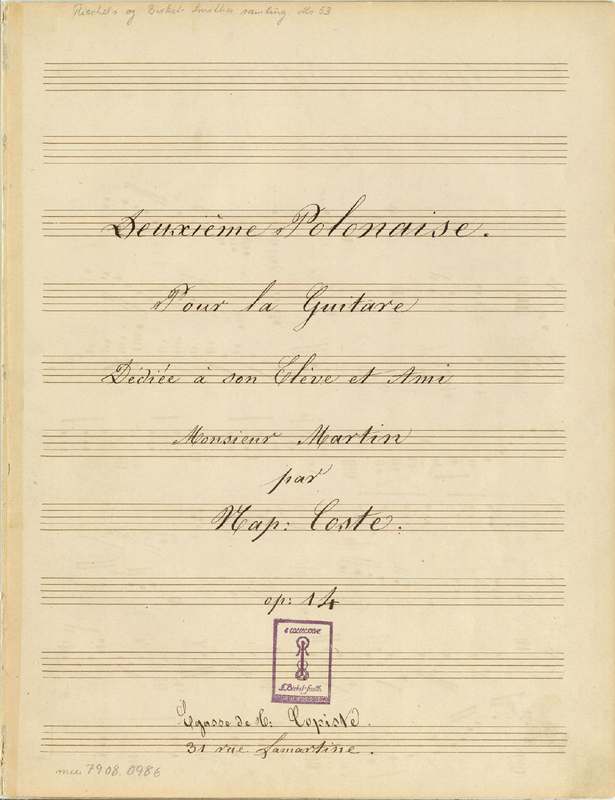 Rischels og Birket-Smiths samling. Ms 53
Deuxième Polonaise.
Pour la Guitare
Dédiée à son Elève et Ami
Monsieur Martin
par
Nap: Coste.
op: 14
F. Birket-Smith
Copiste.
31 rue Lamartine.
mu 7908.0986